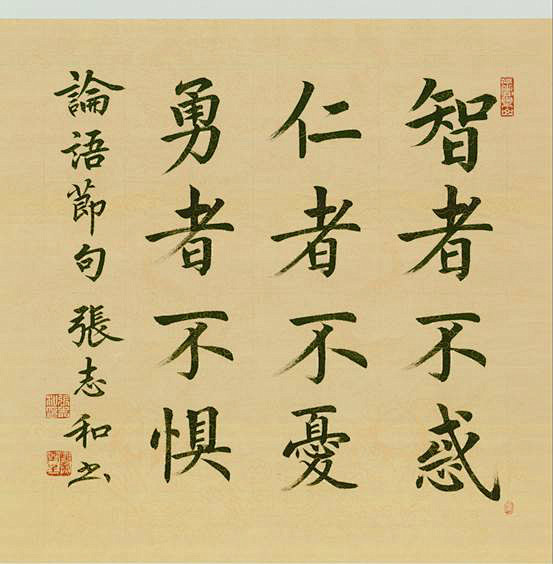 智者不惑
仁者不憂
勇者不懼
論語節句 張志和书